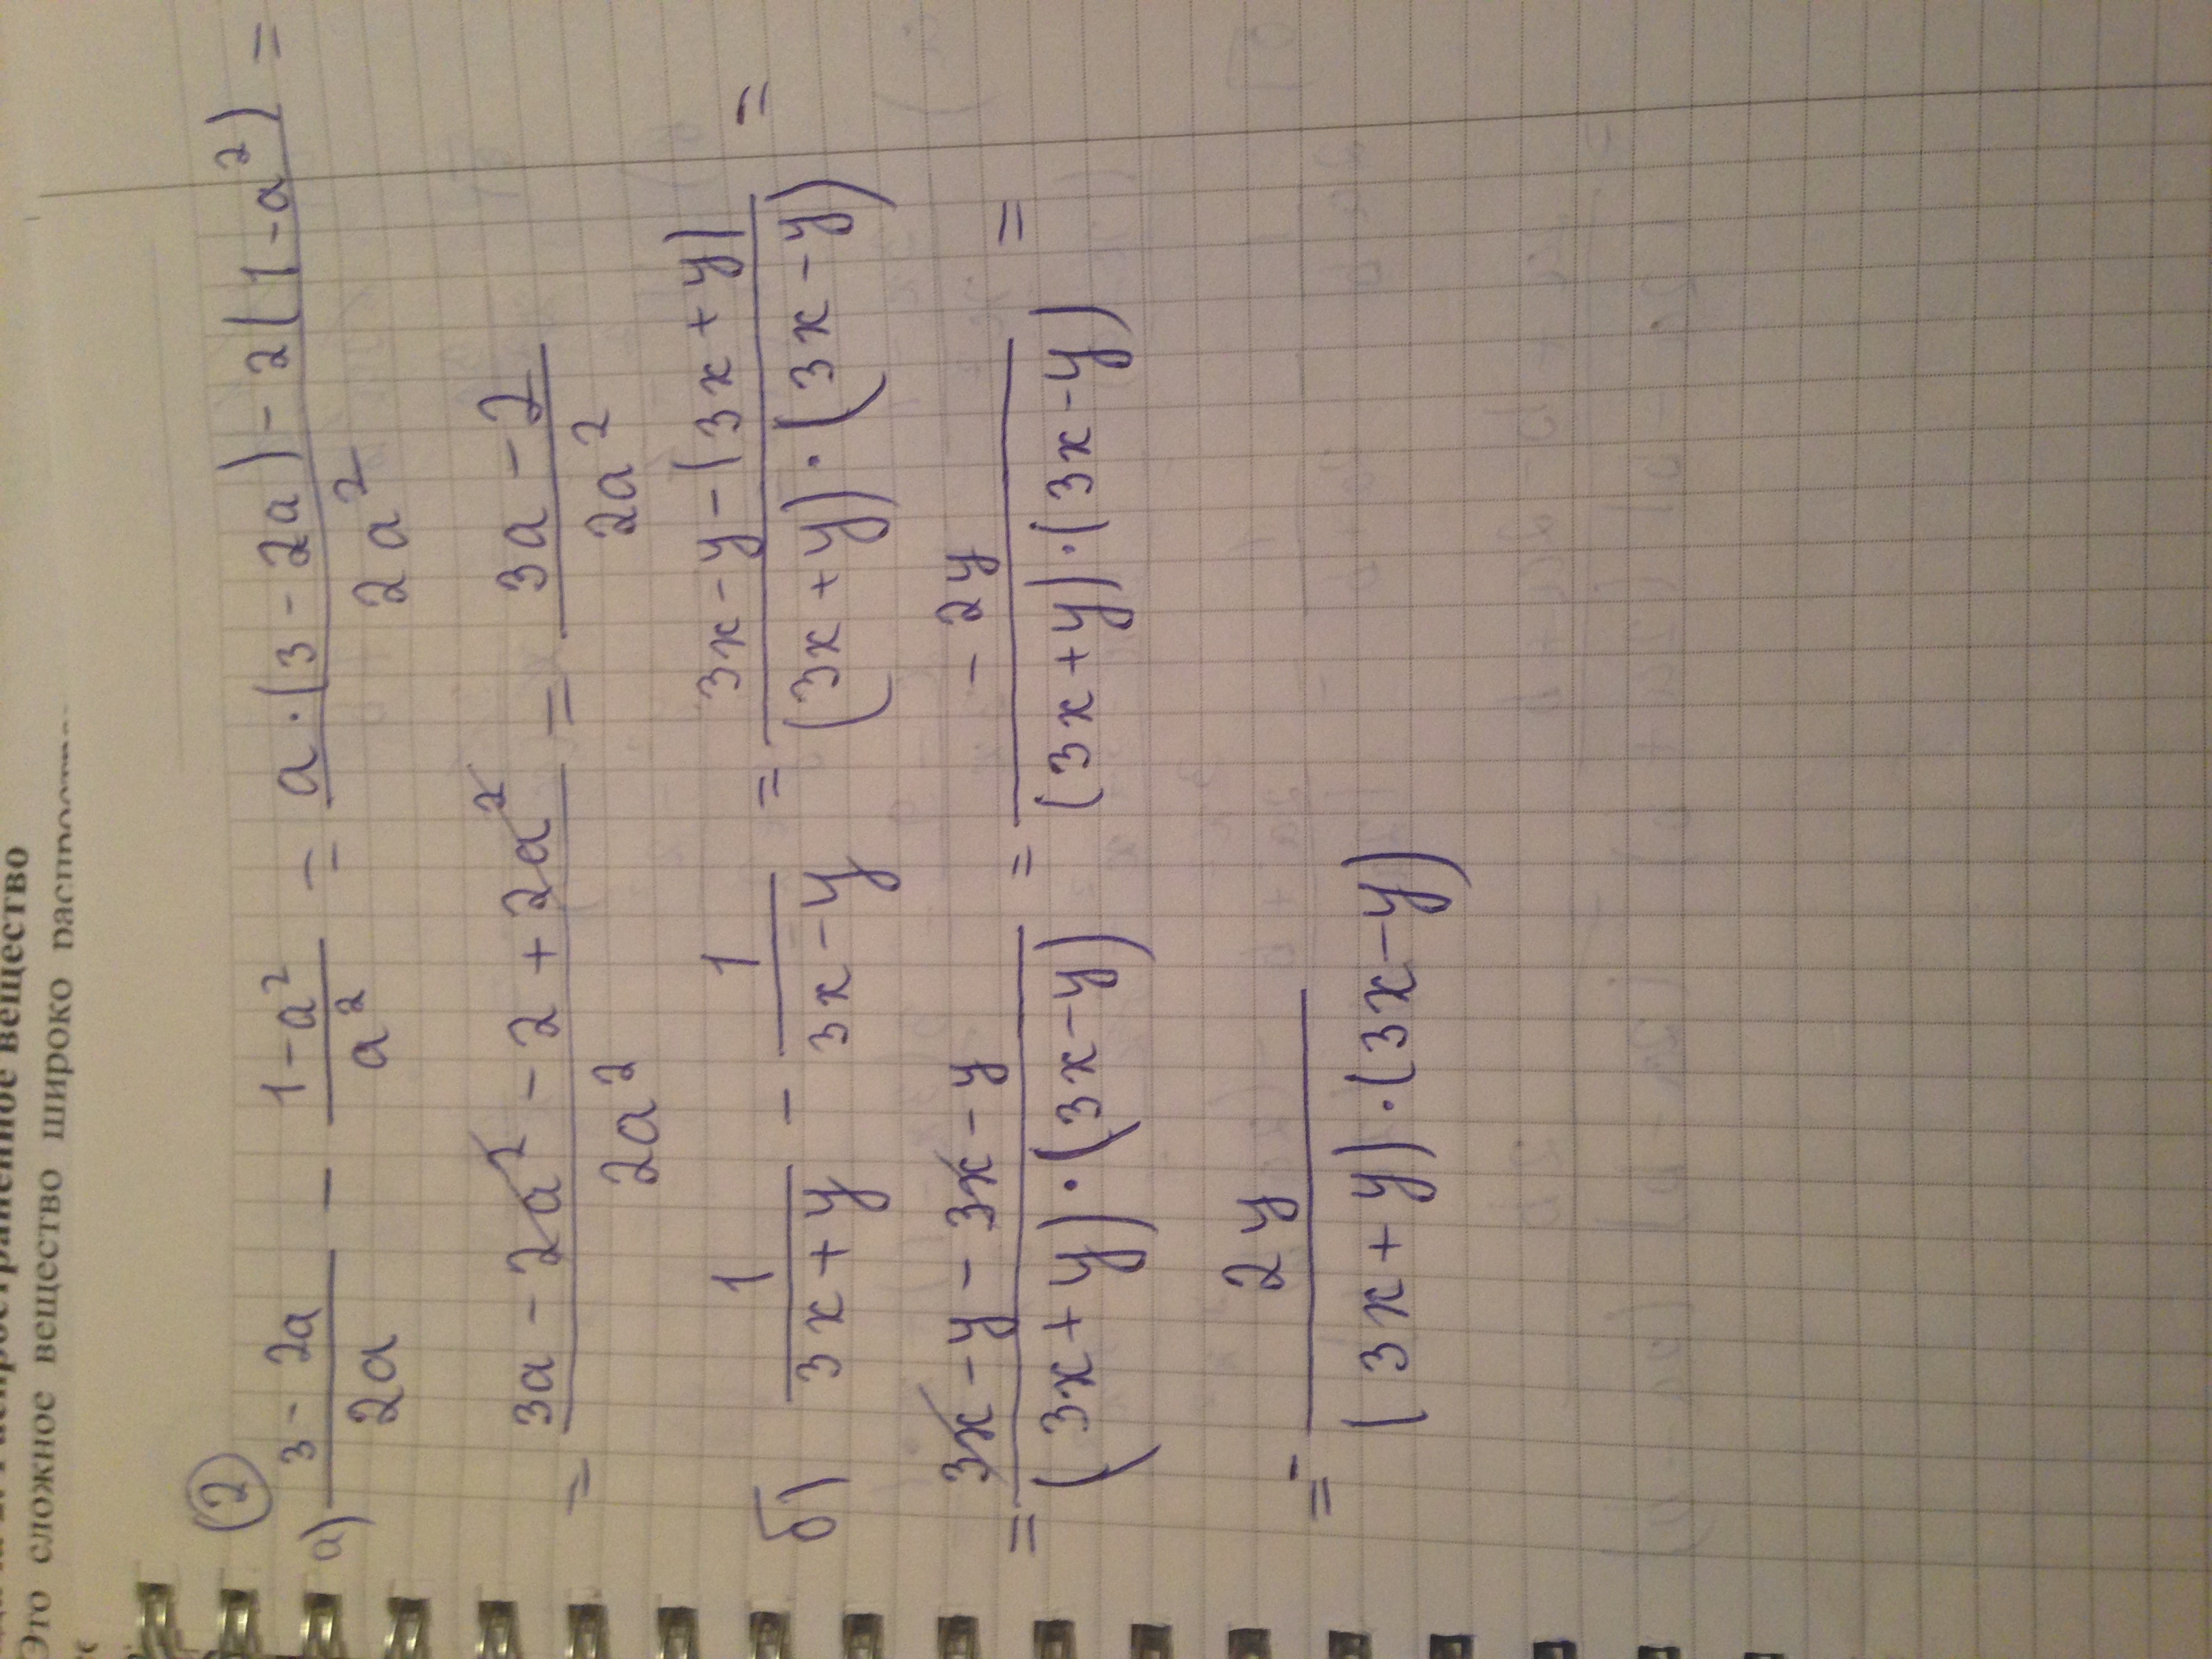 распространённое вещество
Это сложное вещество широко
②
а) (3 - 2a)/(2a) - (1 - a²)/(a²) = (a · (3 - 2a) - 2(1 - a²))/(2a²) =
= (3a - 2a² - 2 + 2a²)/(2a²) = (3a - 2)/(2a²)
б) 1/(3x + y) - 1/(3x - y) = (3x - y - (3x + y))/((3x + y) · (3x - y)) =
= (3x - y - 3x - y)/((3x + y) · (3x - y)) = (- 2y)/((3x + y) · (3x - y)) =
= - (2y)/((3x + y) · (3x - y))